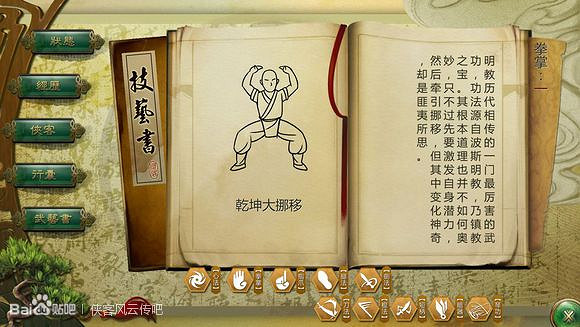 狀態
經歷
俠客
行囊
武藝書
技藝書
乾坤大挪移
拳掌：一
明教历代相传的一门最厉害的武
功，功法源自波斯明教，乃镇教
之宝。其根本道理也并不如何奥
妙，只不过先要激发自身潜力，
然后牵引挪移，但其中变化神奇
，却是匪夷所思。
Bai du 贴吧 | 侠客风云传吧